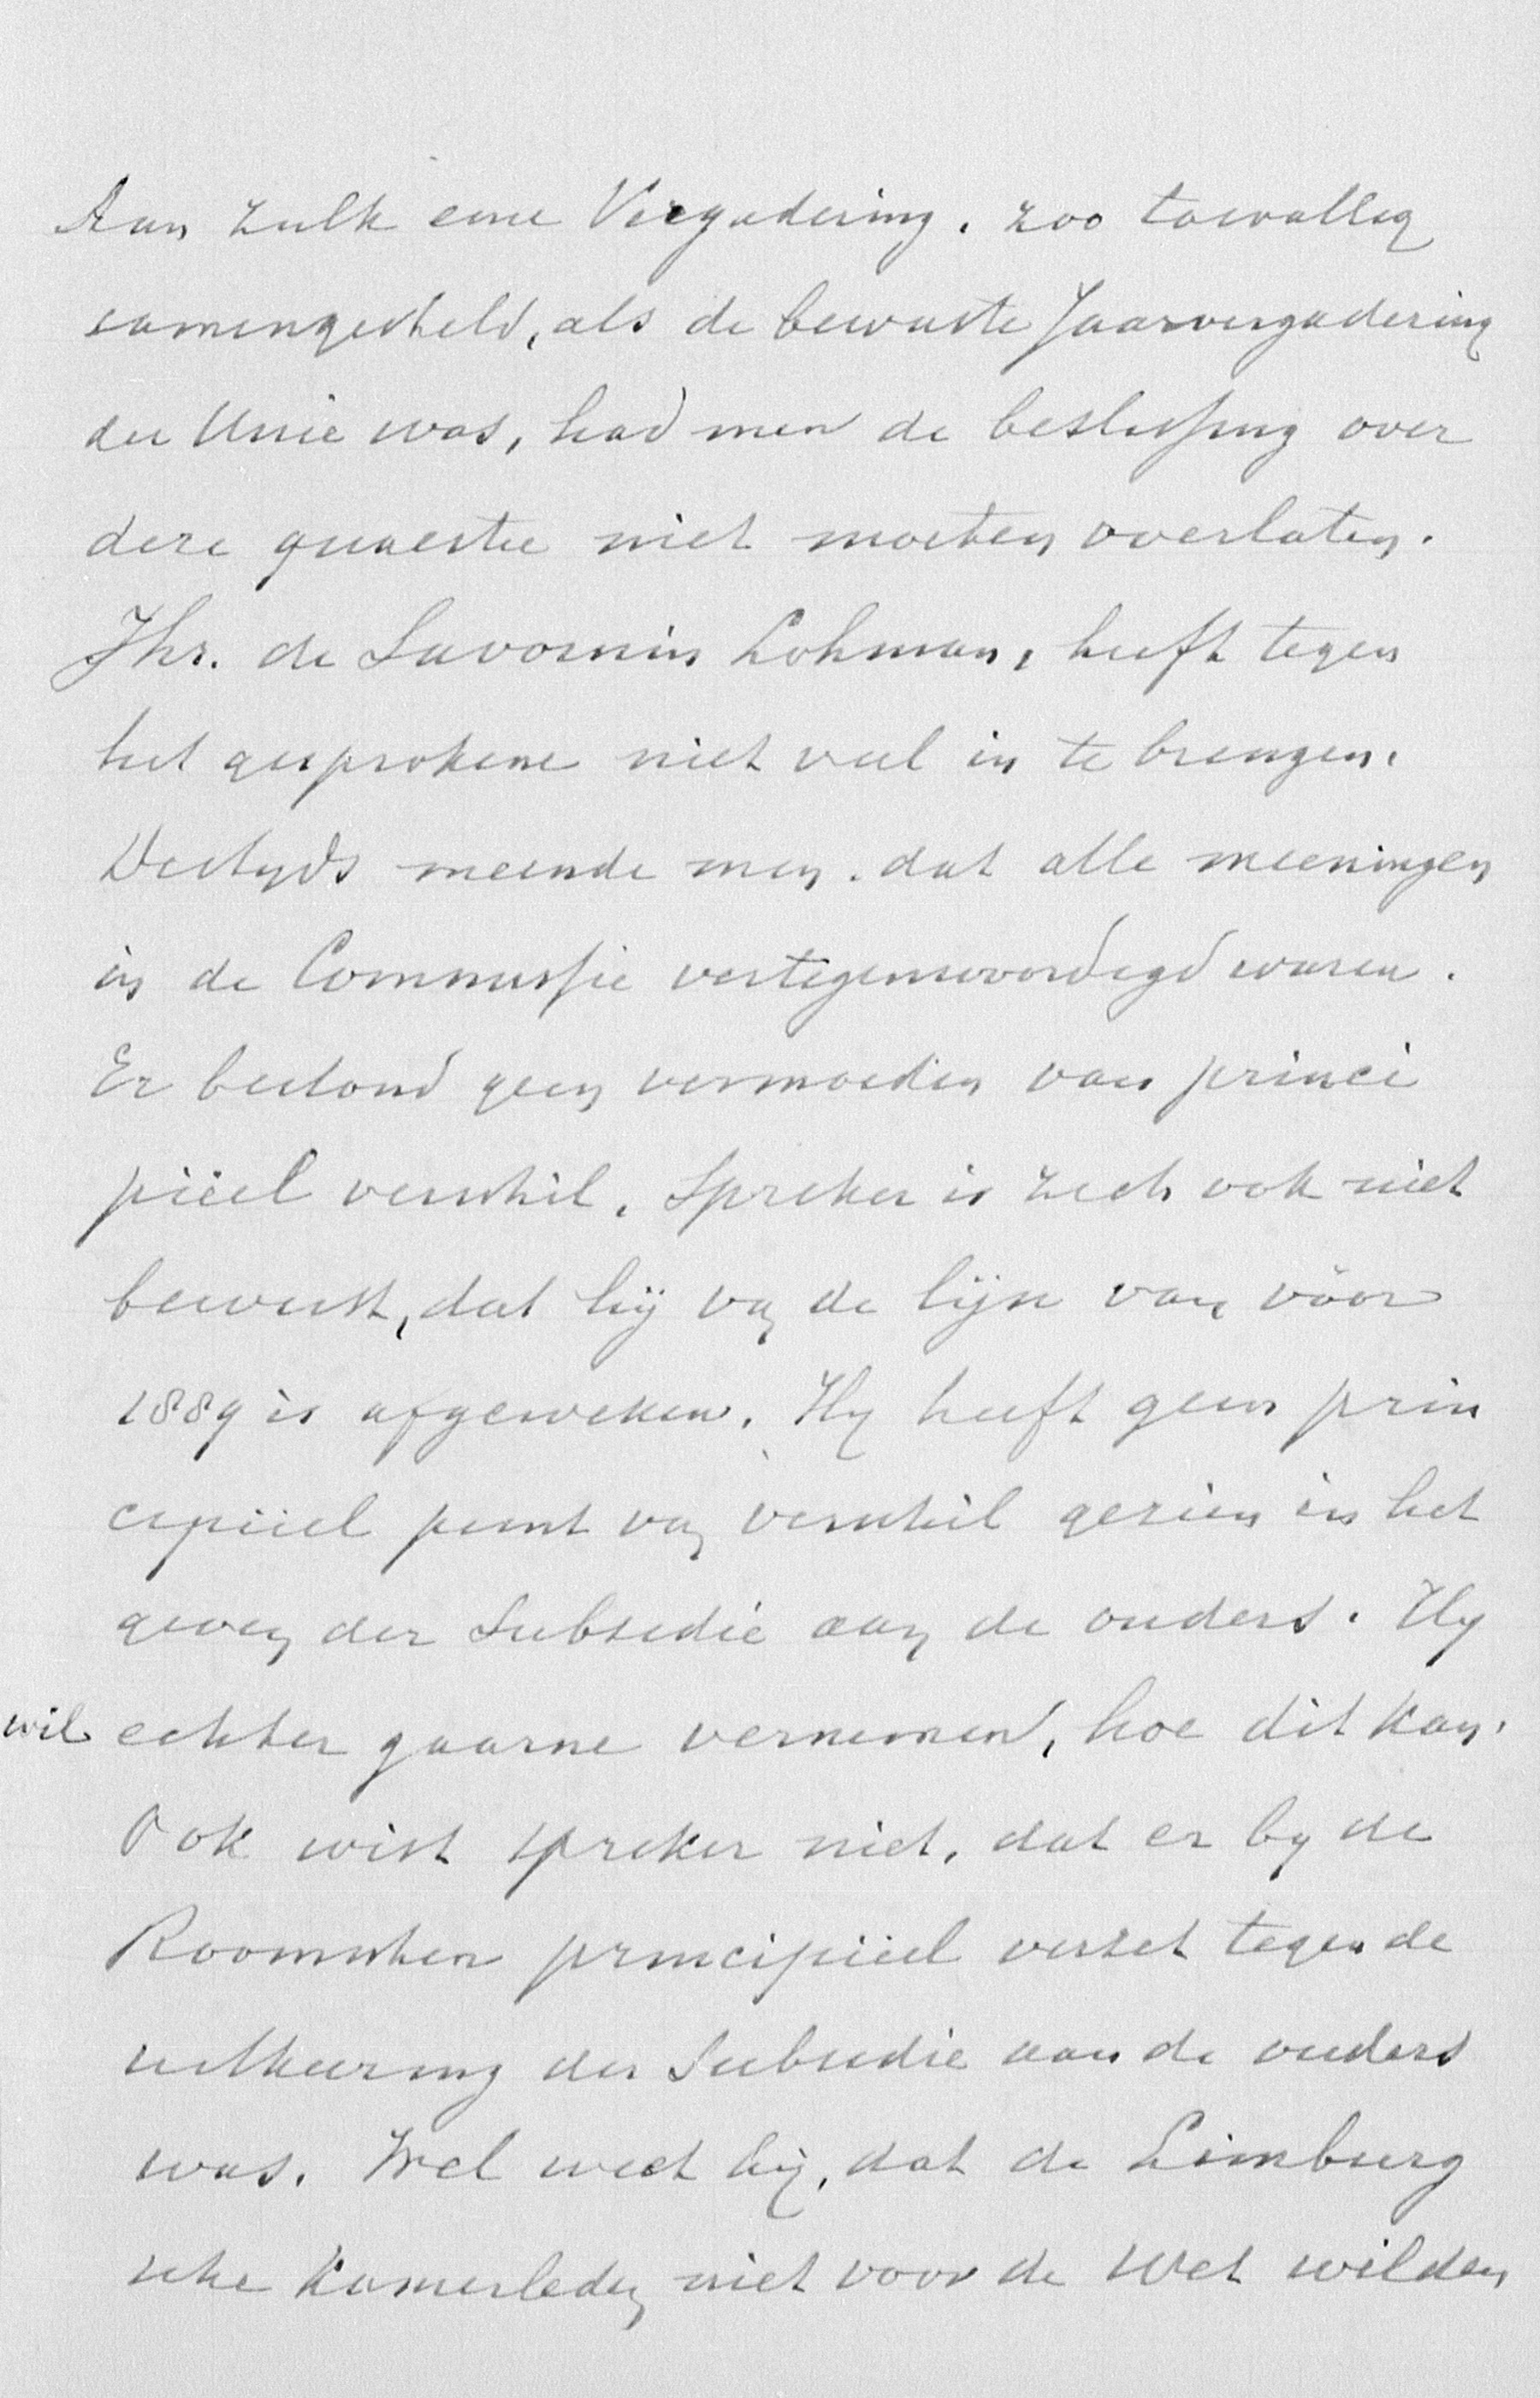 Aan zulk eene Vergadering, zoo toevallig
samengesteld, als de bewuste Jaarvergadering
der Unie was, had men de beslissing over
deze quaestie niet moeten overlaten.
Jhr. de Savornin Lohman, heeft tegen
het gesprokene niet veel in te brengen.
Destyds meende men, dat alle meeningen
in de Commissie vertegenwoordigd waren.
Er bestond geen vermoeden van princi
piëel verschil. Spreker is zich ook niet
bewust, dat hij van de lijn van vóór
1889 is afgeweken. Hy heeft geen prin
cipiëel punt van verschil gezien in het
geven der Subsidie aan de ouders. Hy
wil echter gaarne vernemen, hoe dit kan.
Ook wist spreker niet, dat er by de
Roomschen principiëel verzet tegen de
uitkeering der Subsidie aan de ouders
was. Wel weet hij, dat de Limburg
sche Kamerleden niet voor de Wet wilden